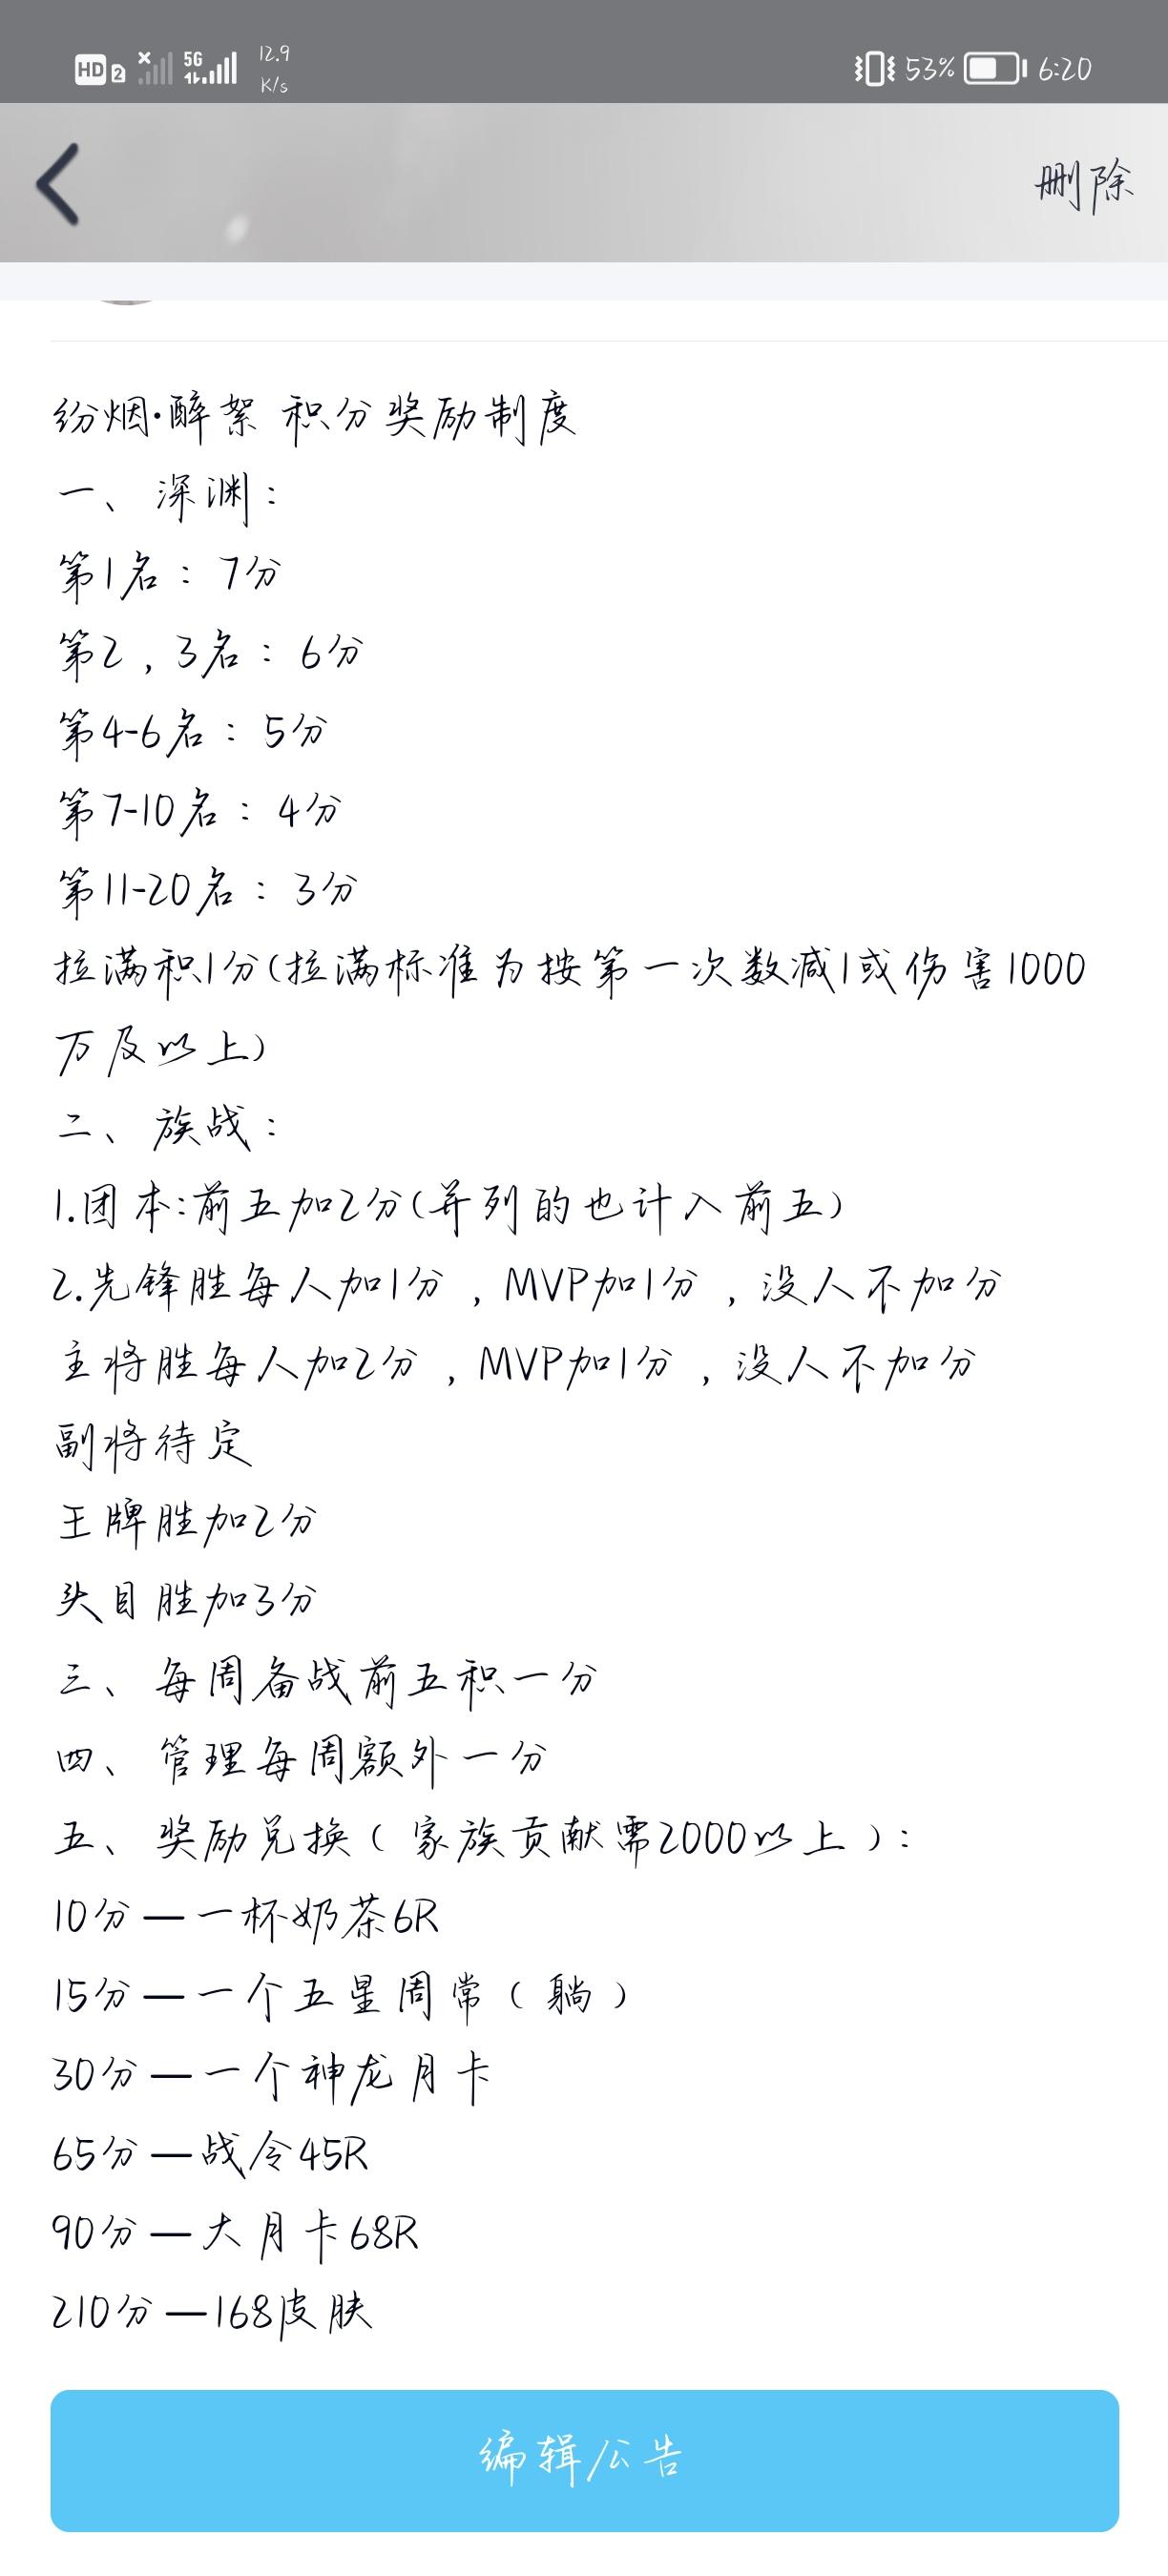 HD 2 5G 12.9 K/s 53% 6:20
删除
纷烟·醉絮 积分奖励制度
一、深渊：
第1名：7分
第2，3名：6分
第4-6名：5分
第7-10名：4分
第11-20名：3分
拉满积1分(拉满标准为按第一次数减1或伤害1000
万及以上)
二、族战：
1.团本:前五加2分(并列的也计入前五)
2.先锋胜每人加1分，MVP加1分，没人不加分
主将胜每人加2分，MVP加1分，没人不加分
副将待定
王牌胜加2分
头目胜加3分
三、每周备战前五积一分
四、管理每周额外一分
五、奖励兑换（家族贡献需2000以上）：
10分—一杯奶茶6R
15分—一个五星周常（躺）
30分—一个神龙月卡
65分—战令45R
90分—大月卡68R
210分—168皮肤
编辑公告